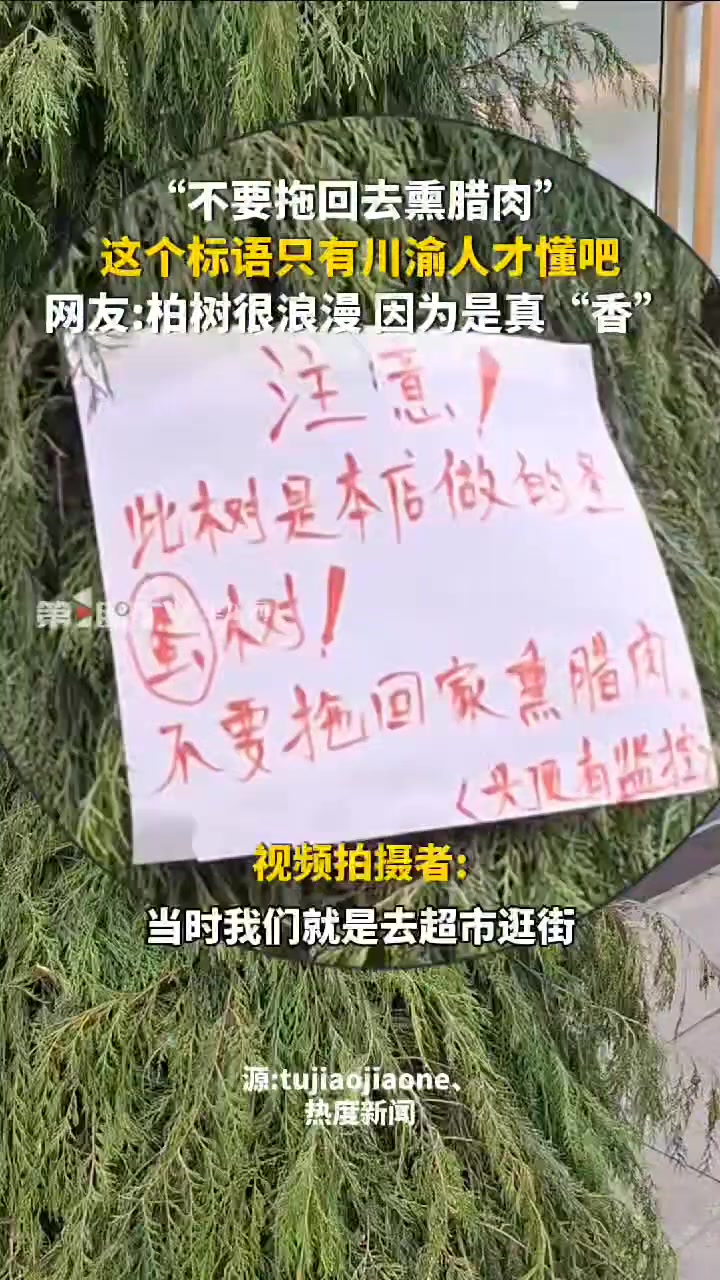 “不要拖回去熏腊肉”
这个标语只有川渝人才懂吧
网友:柏树很浪漫 因为是真“香”
注意!
此树是本店做的圣
蛋树!
不要拖回家熏腊肉、
<头顶有监控>
视频拍摄者:
当时我们就是去超市逛街
源:tujiaojiaone、
热度新闻